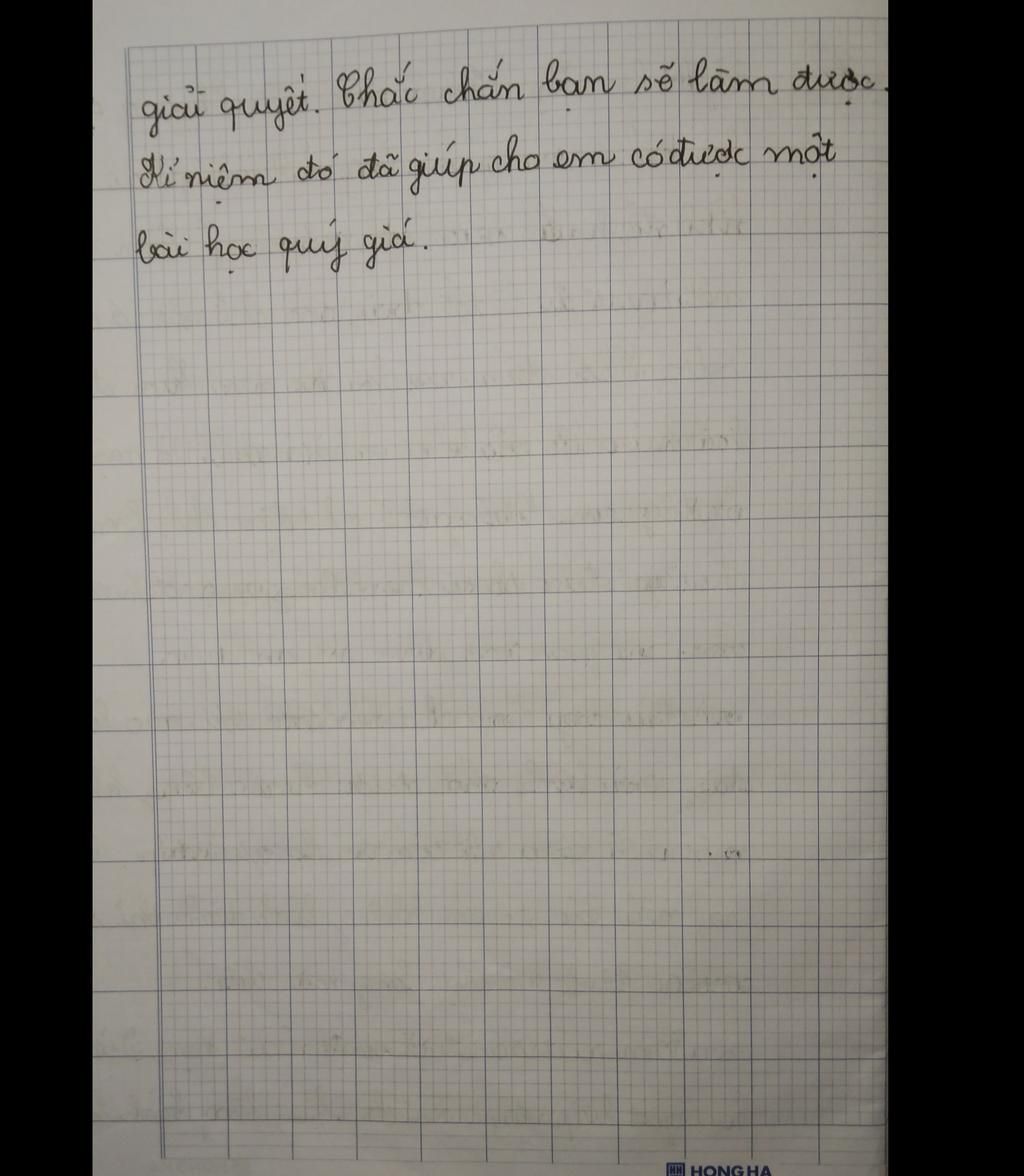 giải quyết. Chắc chắn bạn sẽ làm được.
Kỉ niệm đó đã giúp cho em có được một
bài học quý giá.
HONG HA